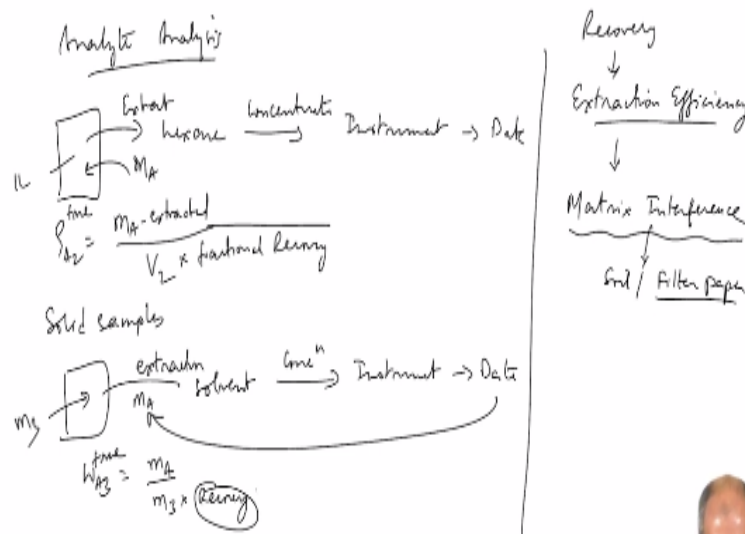 Analyte Analysis
Extract
hexane
Concentrate
Instrument → Data
1L
M_A
ρ_A2^true = m_A-extracted / V_2 × fractional Recovery
Solid samples
extraction
m_3
m_A
Solvent
Concⁿ
Instrument → Data
w_A3^true = m_A / m_3 × Recovery
Recovery
↓
Extraction Efficiency
↓
Matrix Interference
↓
Soil / Filter paper